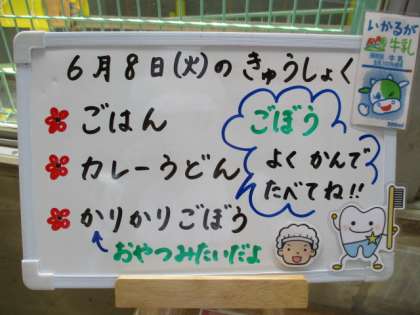 6月8日(火)のきゅうしょく
いかるが
牛乳
ごはん
カレーうどん
かりかりごぼう
おやつみたいだよ
ごぼう
よくかんで
たべてね!!